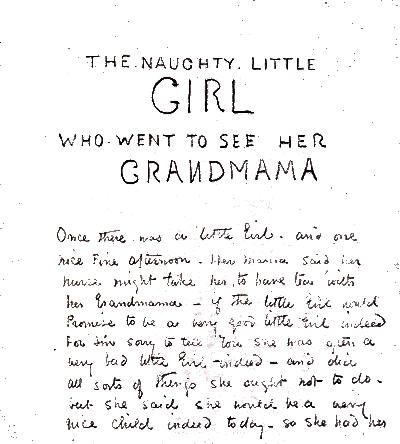 THE. NAUGHTY. LITTLE
GIRL
WHO. WENT TO SEE HER
GRANDMAMA
Once there was a little Girl. and one
nice Fine afternoon. Her mama said her
nurse might take her, to have tea with
her Grandmama - if the little Girl would
Promise to be a very good little Girl indeed
For Im sorry to tell you she was often a
very bad little Girl indeed - and did
all sorts of Things she ought not to do.
but she said she would be a very
nice child indeed today. so she had her